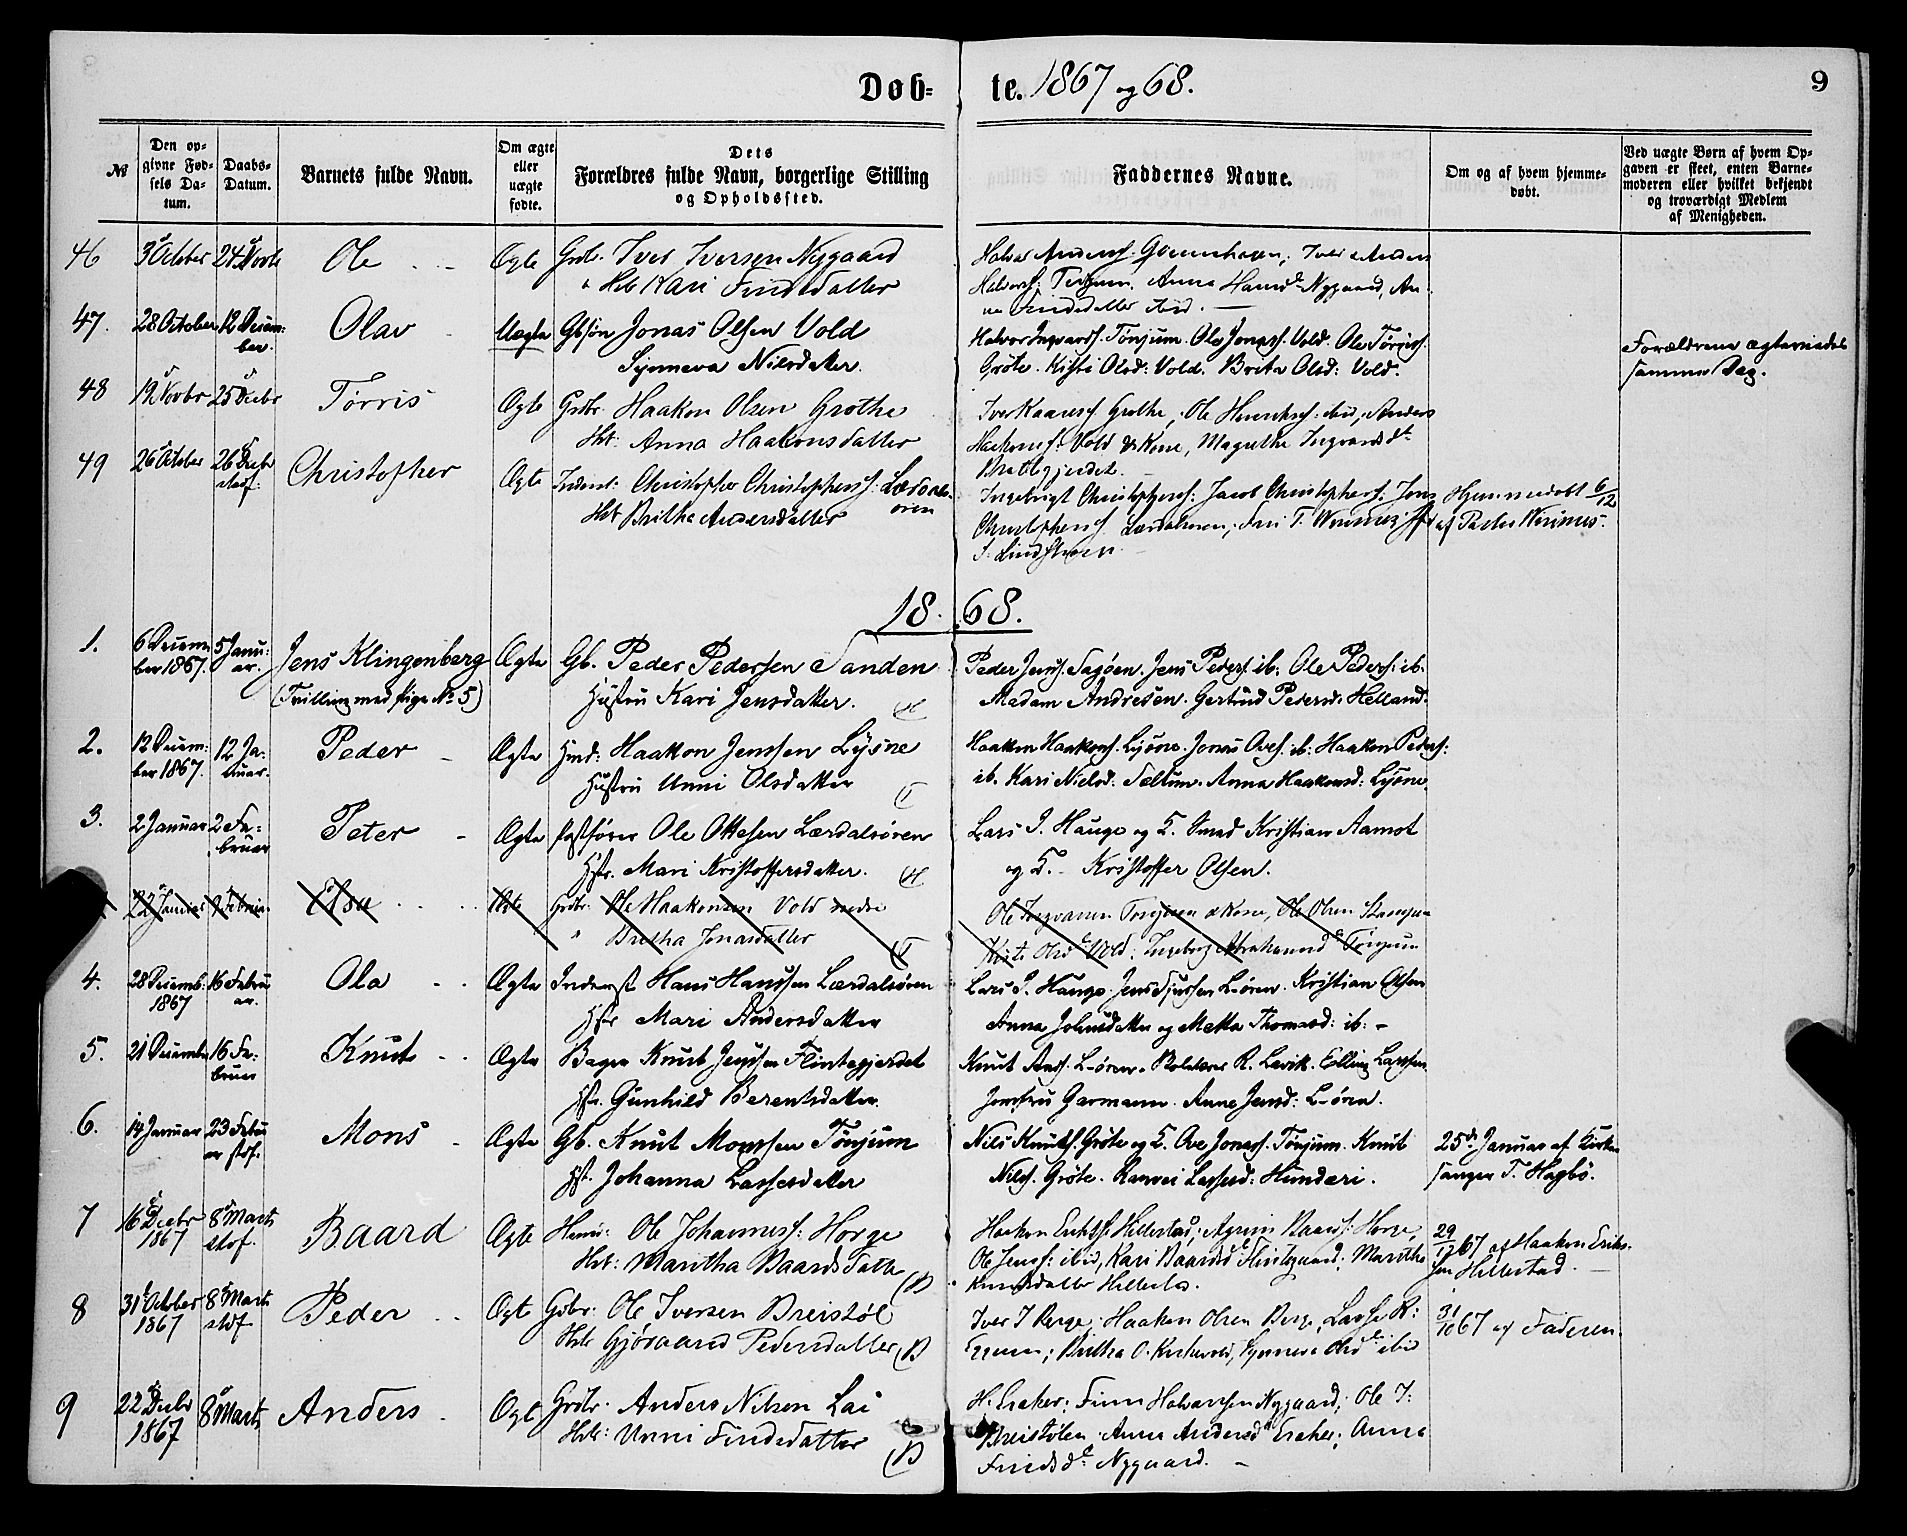 Døb- te. 1867 og 68. 9
№
Den opgivne Fødsels Datum.
Daabs-Datum.
Barnets fulde Navn.
Om ægte eller uægte fødte.
Dets Forældres fulde Navn, borgerlige Stilling og Opholdssted.
Faddernes Navne.
Om og af hvem hjemmedøbt.
Ved uægte Børn af hvem Opgaven er skeet, enten Barnemoderen eller hvilket bekjendt og troværdigt Medlem af Menigheden.
46 3 October 24 Novbr Ole Ægte Grdbr. Iver Iversen Nygaard
Hst Kari Findsdatter
Halvor Anderss. Iver & Anders
Halvorss: Anna Hansd Nygaard, An-
na Findsdatter ibid.
47. 28 October 12 Decem-
ber. Olav Uægte Gbsøn Jonas Olsen Vold
Synneva Nilsdatter.
Halvor Ingvarss. Tønjum. Ole Jonass. Vold. Ole Tørriss.
Grøte. Kisti Olsd: Vold. Brita Olsd: Vold.
Forældrene ægteviedes
samme Dag.
48 19 Novbr 25 Decbr Tørris Ægte Grdbr. Haakon Olsen Grothe
Hst: Anna Haakonsdatter
Iver Kaaress. Grothe, Ole ibid, Anders
Haakonss: Vold & Kone, Magrethe Ingvarsdt
49 26 October 26 Decbr
stadf. Christopher Ægte Inderst: Christopher Christopherss: Lærdals-
øren
Hst Britha Andersdatter
Ingebrigt Christopherss: Jacob Christopherss. Jens
Christopherss. Lærdalsøren,
S. Lindstrøm
Hjemmedøbt 6/12
af Pastor
1868.
1. 6 Decem-
ber 1867. 5 Janu-
ar. Jens Klingenberg
(Tvilling med pige No 5) Ægte Gb. Peder Pedersen Sanden
Hustru Kari Jensdatter.
Peder Jenss. Jens Peders. ib. Ole Pederss. ib.
Madam Andresen. Gertrud Pedersd. Helland.
2. 12 Decem-
ber 1867. 12 Ja-
nuar. Peder Ægte Hmd: Haakon Jenssen Lysne
Hustru Unni Olsdatter
Haakon Haakonss. Lysne. Jonas Oves. ib: Haakon Peders:
ib. Kari Nielsd: Sæltun. Anna Haakonsd: Lysne
3. 2 Januar 2 Fe-
bruar Peter Ægte Postfører Ole Ottesen Lærdalsøren
Hstr. Mari Kristoffersdatter.
Lars I. Hauge og K. Smed Kristian Aamot
og K. Kristoffer Olsen.
22 Januar 9 Februar Elsa Ægte Grdbr. Ole Haakonsen Vold nedre
" Bretha Jonasdatter
Ole Ingvarsen Tønjum & Kone, Ole Olsen
Kisti Olsd Vold. Ingeborg Abrahamsd Tønjum
4. 28 Decemb:
1867 16 Febru-
ar. Ola Ægte Inderst Hans Hanssen Lærdalsøren
Hstr Mari Andersdatter
Lars I. Hauge. Jens L-øren. Kristian Olsen
Anna Johnsdatter og Metta Thomasd: ib:
5. 21 December 16 Fe-
bruar Knut Ægte Bager Knut Jenssen Flintegjerdet
Hstr. Gunhild Berentsdatter.
Knut Ands. L-øren. R. Lavik. Elling Larssen
Jomfru Garmann. Anna Jensd: L-øren.
6. 14 Januar 23 Febru-
ar stdf. Mons Ægte Gb. Knut Monssen Tønjum
Hst. Johanna Lassesdatter
Nils Knuts. Grøte og K. Ove Jonass. Tønjum. Knut
Nilss. Grøte. Ranvei Lassesd: Hunderi.
25de Januar af Kirke-
sanger T. Hagbø.
7 16 Decbr
1867 8 Marts
stdf. Baard Ægte Hmd: Ole Johanness. Horge
Hst: Maritha Baardsdatter
Haakon Erikss. Hillestad; Baards: Horge,
Ole Jenss: ibid, Kari Baardsd Maritha
Knudsdatter Hillestad.
29/12 67 af Haakon Eriks-
sen Hillestad.
8 31 October
1867 8 Marts
stdf Peder Ægt Grbr: Ole Iversen Breistøl
Hst: Gjøraand Pedersdatter
Iver I Berge. Haakon Olsen Berge, Lasse R:
Britha O. Synneva Olsd ibid
31/10 67 af Faderen
9 22 Decbr
1867 8 Marts Anders Ægt Grdbr. Anders Nilsen Lai
Hst: Unni Findsdatter
H. Eraker; Finn Halvorssen Nygaard; Ole I:
Breistølen. Anna Andersd Eraker; Anna
Findsdt. Nygaard.